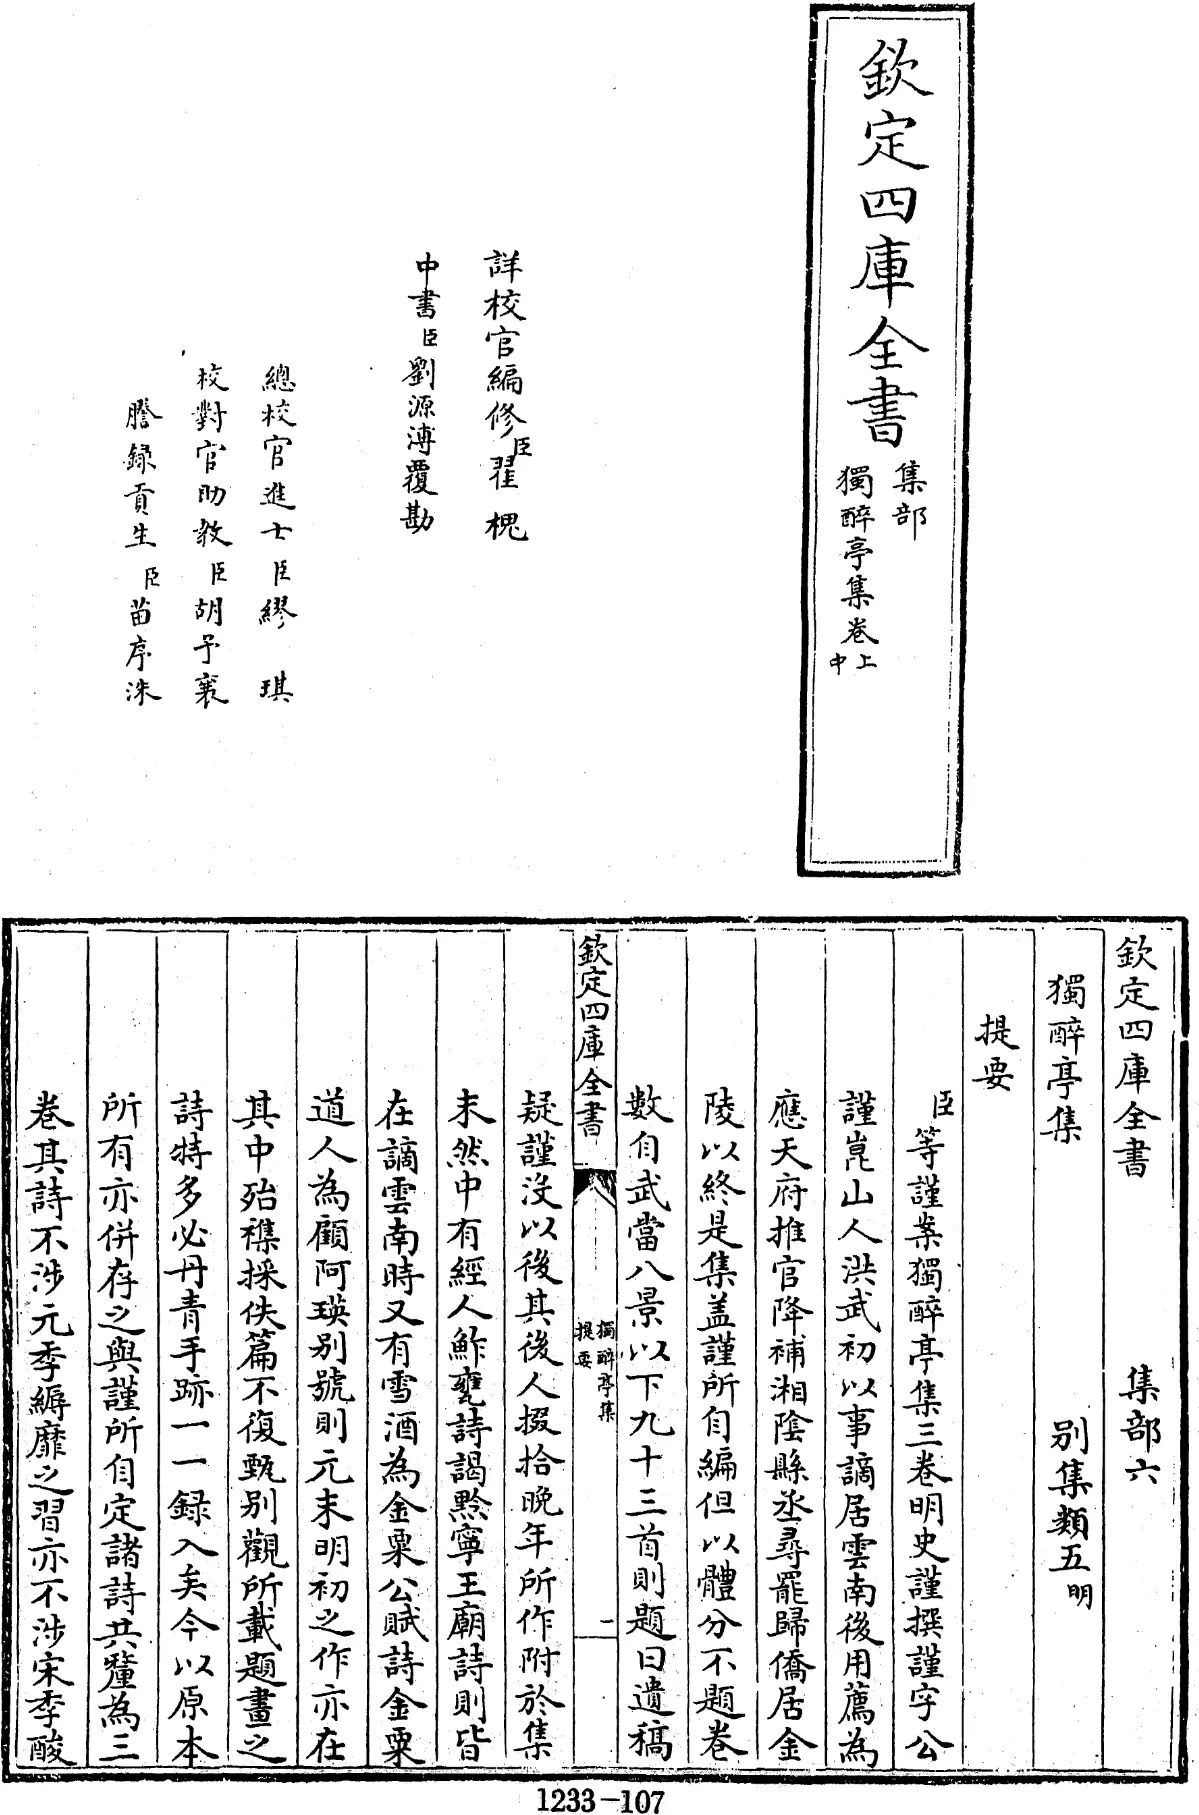 欽定四庫全書
集部
獨醉亭集卷上
中
詳校官編修臣翟槐
中書臣劉源溥覆勘
總校官進士臣繆琪
校對官助教臣胡予襄
謄録貢生臣苗序洙
欽定四庫全書 集部六
獨醉亭集 别集類五明
提要
臣等謹案獨醉亭集三卷明史謹撰謹字公
謹崑山人洪武初以事謫居雲南後用薦為
應天府推官降補湘隂縣丞尋罷歸僑居金
陵以終是集盖謹所自編但以體分不題卷
數自武當八景以下九十三首則題曰遺稿
欽定四庫全書
獨醉亭集
提要
一
疑謹没以後其後人掇拾晚年所作附於集
末然中有經人鮓甕詩謁黔寧王廟詩則皆
在謫雲南時又有雪酒為金粟公賦詩金粟
道人為顧阿瑛别號則元末明初之作亦在
其中殆襍採佚篇不復甄别觀所載題畫之
詩特多必丹青手跡一一録入矣今以原本
所有亦併存之與謹所自定諸詩共釐為三
卷其詩不涉元季縟靡之習亦不涉宋季酸
1233-107